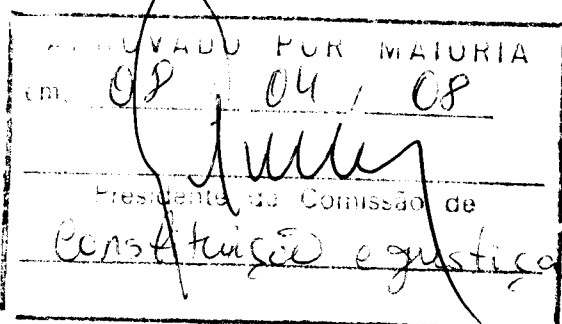 APROVADO POR MAIORIA
em, 08 / 04 / 08
Presidente da Comissão de
Constituição e Justiça